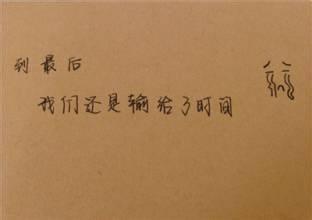 到最后
我们还是输给了时间